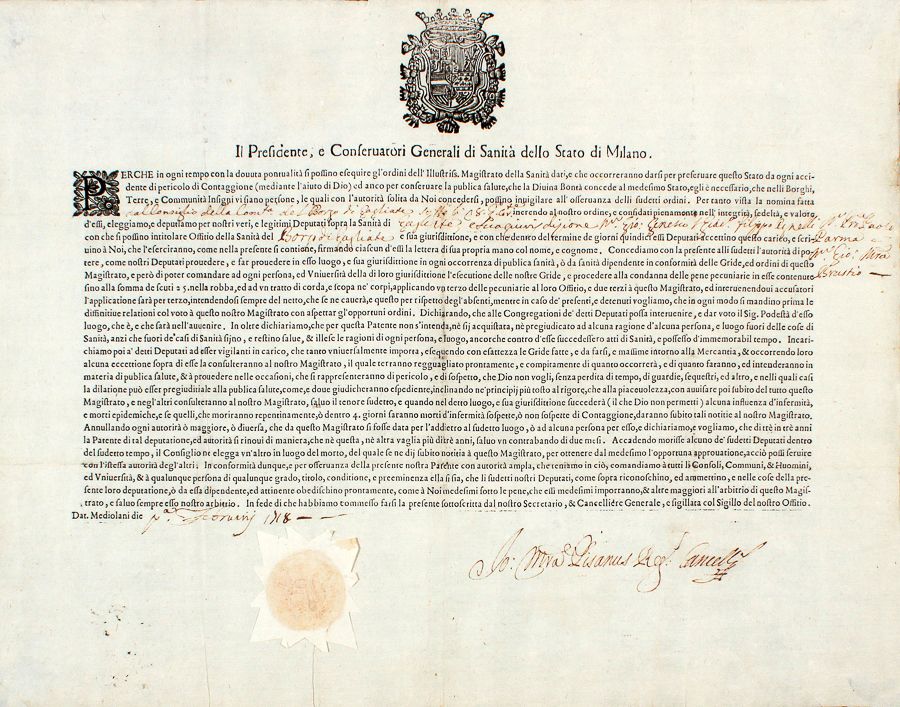 Il Presidente, e Conseruatori Generali di Sanità dello Stato di Milano.
PERCHE in ogni tempo con la douuta pontualità si possino esequire gl'ordini dell'Illustriss. Magistrato della Sanità dati, e che occorreranno darsi per preseruare questo Stato da ogni acci
dente di pericolo di Contaggione (mediante l'aiuto di Dio) ed anco per conseruare la publica salute, che la Diuina Bontà concede al medesimo Stato, egli è necessario, che nelli Borghi,
Terre, e Communità Insigni vi siano persone, le quali con l'autorità solita da Noi concedersi, possino inuigilare all'osseruanza delli sudetti ordini. Per tanto vista la nomina fatta
inerendo al nostro ordine, e confidati pienamente nell'integrità, fedeltà, e valore
d'essi, eleggiamo, e deputiamo per nostri veri, e legitimi Deputati sopra la Sanità di
con che si possino intitolare Officio della Sanità del Borgo di Gagliate e sua giurisditione, e con che dentro del termine de giorni quindici essi Deputati accettino questo carico, e scri-
uino à Noi, che l'eserciranno, come nella presente si contiene, firmando ciascun d'essi la lettera di sua propria mano col nome, e cognome. Concediamo con la presente alli sudetti l'autorità di po-
tere, come nostri Deputati prouedere, e far prouedere in esso luogo, e sua giurisdittione in ogni occorrenza di publica sanità, ò da sanità dipendente in conformità delle Gride, ed ordini di questo
Magistrato, e però di poter comandare ad ogni persona, ed Vniuersità della di loro giurisdittione l'esecutione delle nostre Gride, e procedere alla condanna delle pene pecuniarie in esse contenute
sino alla somma de scuti 25. nella robba, ed ad vn tratto di corda, e scopa ne' corpi, applicando vn terzo delle pecuniarie al loro Offitio, e due terzi à questo Magistrato, ed interuenendoui accusatori
l'applicatione sarà per terzo, intendendosi sempre del netto, che se ne cauerà, e questo per rispetto degl'absenti, mentre in caso de' presenti, e detenuti vogliamo, che in ogni modo si mandino prima le
diffinitiue relationi col voto à questo nostro Magistrato con aspettar gl'opportuni ordini. Dichirando, che alle Congregationi de' detti Deputati possa interuenire, e dar voto il Sig. Podestà d'esso
luogo, che è, e che sarà nell'auuenire. In oltre dichiariamo, che per questa Patente non s'intenda, nè sij acquistata, nè pregiudicato ad alcuna ragione d'alcuna persona, e luogo fuori delle cose di
Sanità, anzi che fuori de' casi di Sanità sijno, e restino salue, & illese le ragioni di ogni persona, e luogo, ancorche contro d'esse succedessero atti di Sanità, e possesso d'immemorabil tempo. Incari-
chiamo poi a' detti Deputati ad esser vigilanti in carico, che tanto vniuersalmente importa, esequendo con esattezza le Gride fatte, e da farsi, e massime intorno alla Mercantia, & occorrendo loro
alcuna eccettione sopra di esse la consulteranno al nostro Magistrato, il quale terranno regguagliato prontamente, e compitamente di quanto occorrerà, e di quanto faranno, ed intenderanno in
materia di publica salute, & à prouedere nelle occasioni, che si rappresenteranno di pericolo, e di sospetto, che Dio non vogli, senza perdita di tempo, di guardie, sequestri, ed altro, e nelli quali casi
la dilatione può esser pregiuditiale alla publica salute, come, e doue giudicheranno espediente, inclinando ne' principij più tosto al rigore, che alla piaceuolezza, con auuisare poi subito del tutto questo
Magistrato, e negl'altri consulteranno al nostro Magistrato, saluo il tenore sudetto, e quando nel detto luogo, e sua giurisdittione succederà (il che Dio non permetti) alcuna influenza d'infermità,
e morti epidemiche, e se quelli, che moriranno repentinamente, ò dentro 4. giorni saranno morti d'infermità sospette, ò non sospette di Contaggione, daranno subito tali notitie al nostro Magistrato.
Annullando ogni autorità ò maggiore, ò diuersa, che da questo Magistrato si fosse data per l'addietro al sudetto luogo, ò ad alcuna persona per esso, e dichiariamo, e vogliamo, che di trè in trè anni
la Patente di tal deputatione, ed autorità si rinoui di maniera, che nè questa, nè altra vaglia più di trè anni, saluo vn contrabando di due mesi. Accadendo morisse alcuno de' sudetti Deputati dentro
del sudetto tempo, il Consiglio ne elegga vn'altro in luogo del morto, del qual se ne dij subito notitia à questo Magistrato, per ottener dal medemo l'opportuna approuatione, acciò possi seruire
con l'istessa autorità degl'altri. In conformità dunque, e per osseruanza della presente nostra Patente con autorità ampla, che teniamo in ciò, comandiamo à tutti li Consoli, Communi, & Huomini,
ed Vniuersità, & à qualunque persona di qualunque grado, titolo, conditione, e preeminenza ella si sia, che li sudetti nostri Deputati, come sopra riconoschino, ed ammettino, e nelle cose della pre-
sente loro deputatione, ò da essa dipendente, ed attinente obedischino prontamente, come à Noi medesimi sotto le pene, che essi medesimi importanno, & altre maggiori all'arbitrio di questo Magi-
strato, e saluo sempre esso nostro arbitrio. In fede di che habbiamo commesso farsi la presente sottoscritta dal nostro Secretario, & Cancelliére Generale, e sigillata col Sigillo del nostro Officio.
Dat. Mediolani die
Pisanus Reg. Cancell.